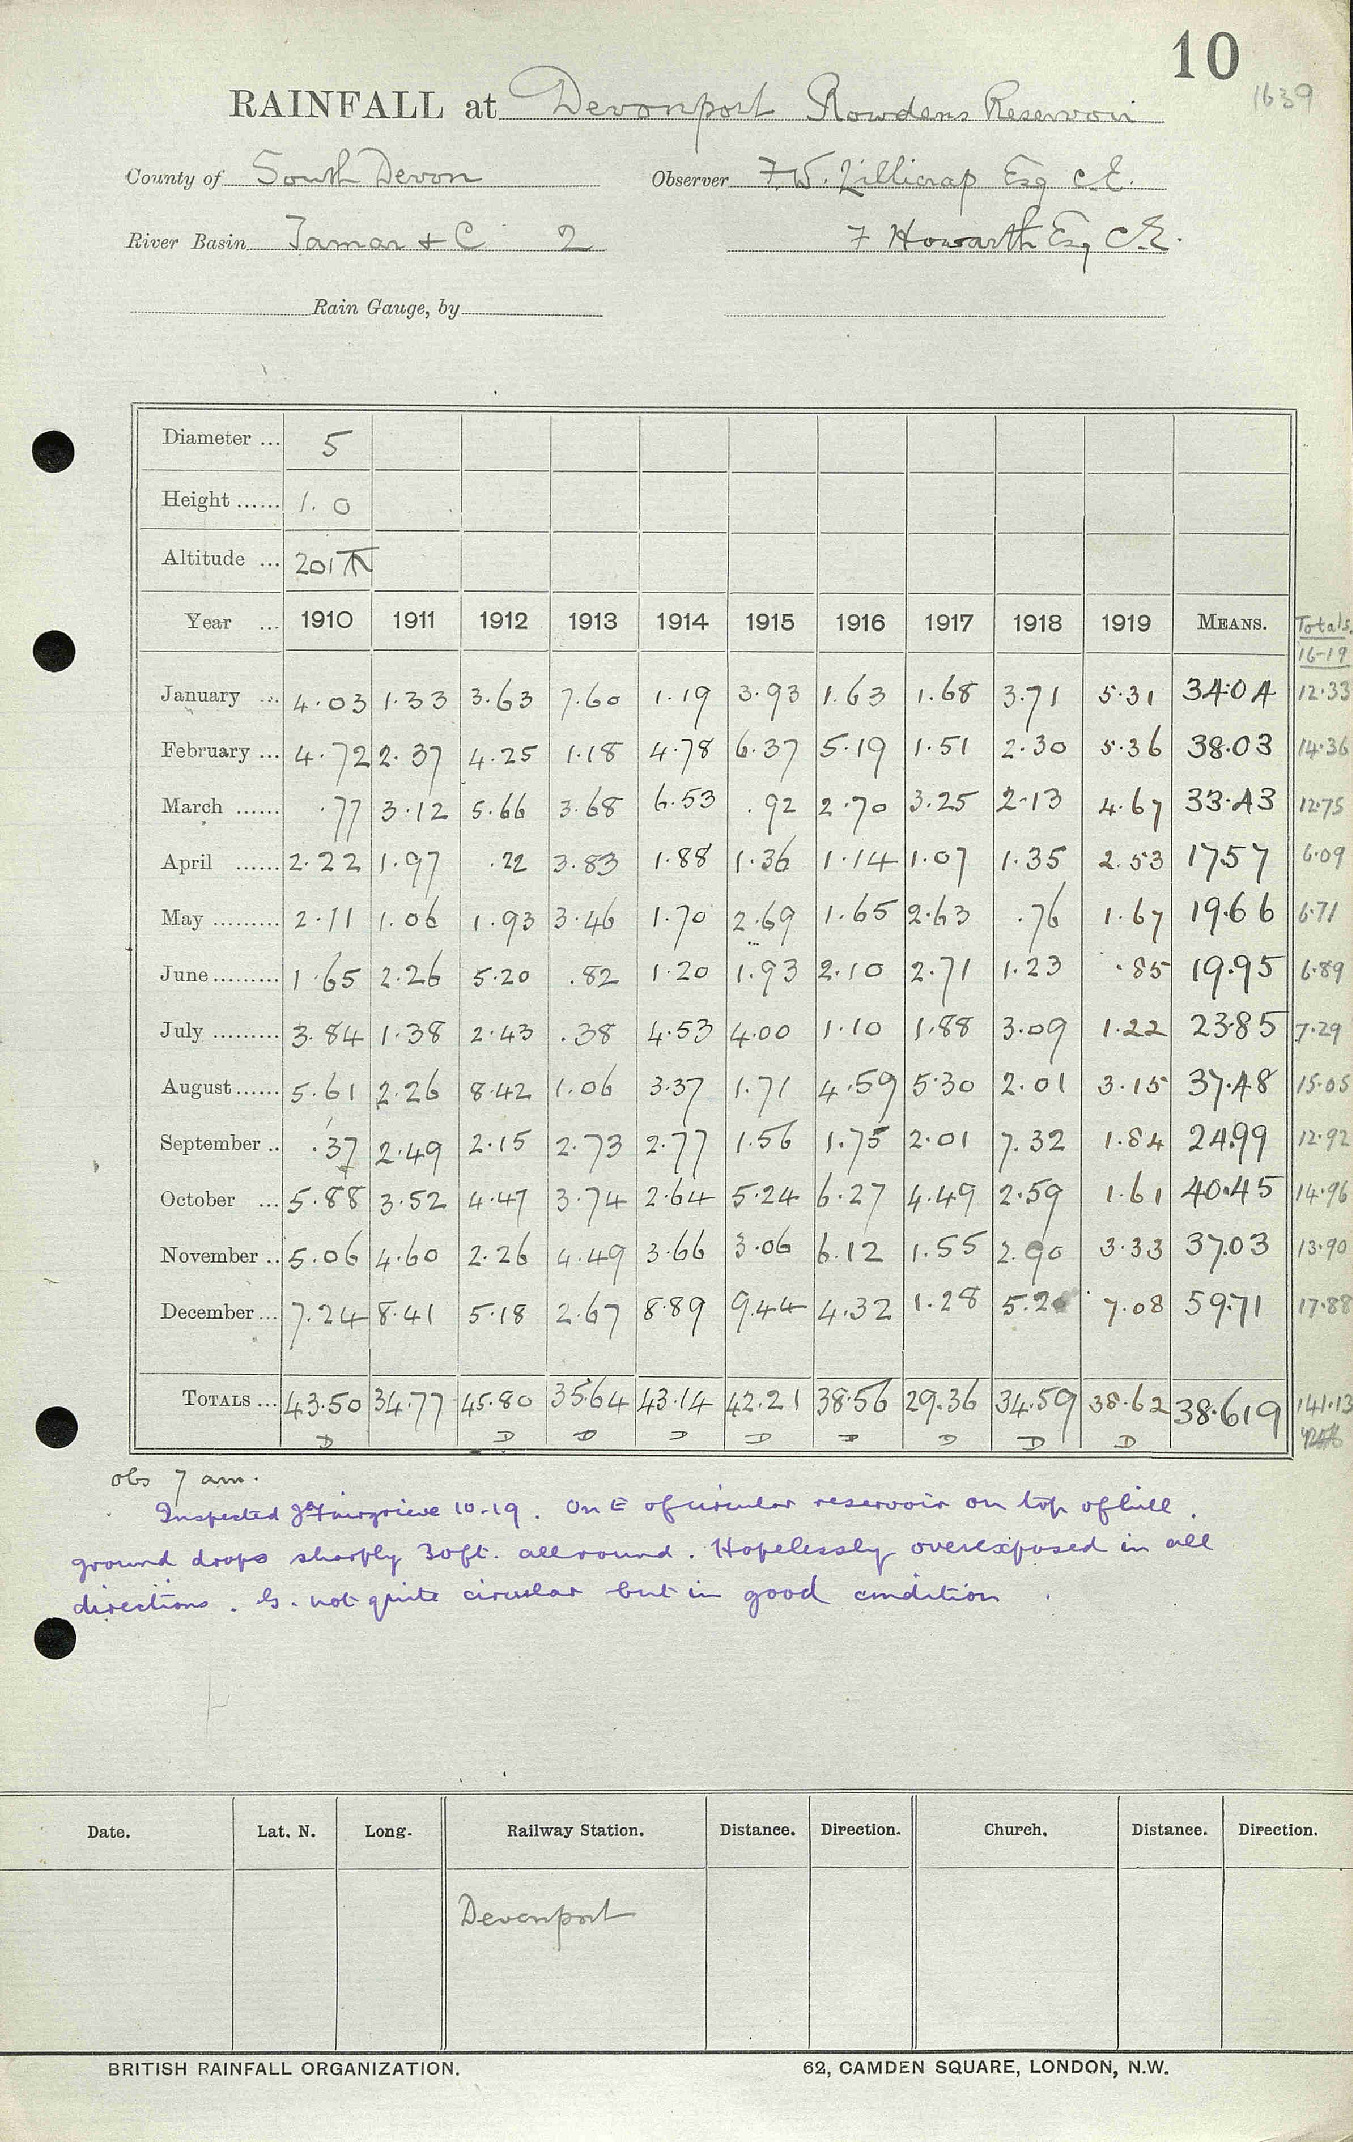 10
1639
RAINFALL at Devonport Rowdens Reservoir
County of South Devon Observer F.W. Lillicrap Esq C.E.
River Basin Tamar + C 2 F Howarth Esq C.E.
Rain Gauge, by
Diameter ... 5
Height ...... 1.0
Altitude ... 201
Year ... 1910 1911 1912 1913 1914 1915 1916 1917 1918 1919 MEANS. Totals
16-19
January ... 4.03 1.33 3.63 7.60 1.19 3.93 1.63 1.68 3.71 5.31 34.04 12.33
February ... 4.72 2.37 4.25 1.18 4.78 6.37 5.19 1.51 2.30 5.36 38.03 14.36
March ...... .77 3.12 5.66 3.68 6.53 .92 2.70 3.25 2.13 4.67 33.43 12.75
April ...... 2.22 1.97 .22 3.83 1.88 1.36 1.14 1.07 1.35 2.53 17.57 6.09
May ......... 2.11 1.06 1.93 3.46 1.70 2.69 1.65 2.63 .76 1.67 19.66 6.71
June ......... 1.65 2.26 5.20 .82 1.20 1.93 2.10 2.71 1.23 .85 19.95 6.89
July ......... 3.84 1.38 2.43 .38 4.53 4.00 1.10 1.88 3.09 1.22 23.85 7.29
August ...... 5.61 2.26 8.42 1.06 3.37 1.71 4.59 5.30 2.01 3.15 37.48 15.05
September .. .37 2.49 2.15 2.73 2.77 1.56 1.75 2.01 7.32 1.84 24.99 12.92
October ... 5.88 3.52 4.47 3.74 2.64 5.24 6.27 4.49 2.59 1.61 40.45 14.96
November .. 5.06 4.60 2.26 4.49 3.66 3.06 6.12 1.55 2.90 3.33 37.03 13.90
December ... 7.24 8.41 5.18 2.67 8.89 9.44 4.32 1.28 5.20 7.08 59.71 17.88
TOTALS ... 43.50 34.77 45.80 35.64 43.14 42.21 38.56 29.36 34.59 38.62 38.619 141.13
D D D D D D D D D
obs 7 am.
Inspected J Fairgrieve 10.19. On E of circular reservoir on top of hill.
ground drops sharply 30ft. all round. Hopelessly overexposed in all
directions. G. not quite circular but in good condition
Date. Lat. N. Long. Railway Station. Distance. Direction. Church. Distance. Direction.
Devonport
BRITISH RAINFALL ORGANIZATION. 62, CAMDEN SQUARE, LONDON, N.W.